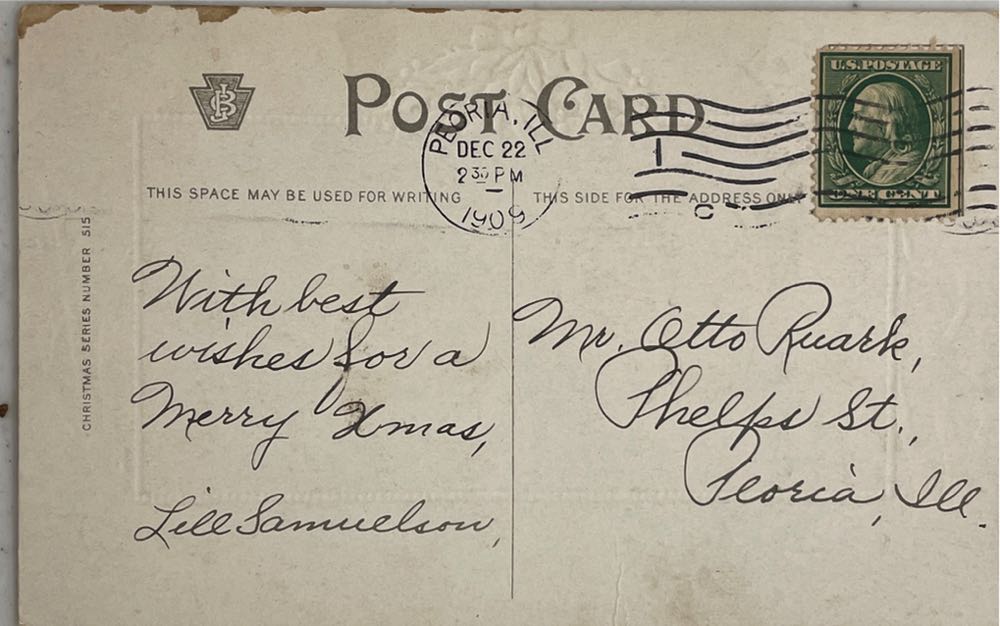 POST CARD
PEORIA, ILL
DEC 22
2 30 PM
1909
U.S. POSTAGE
ONE CENT
THIS SPACE MAY BE USED FOR WRITING
THIS SIDE FOR THE ADDRESS ONLY
CHRISTMAS SERIES NUMBER 515
With best
wishes for a
Merry Xmas,
Lill Samuelson,
Mr. Otto Ruark,
Phelps St.,
Peoria, Ill.